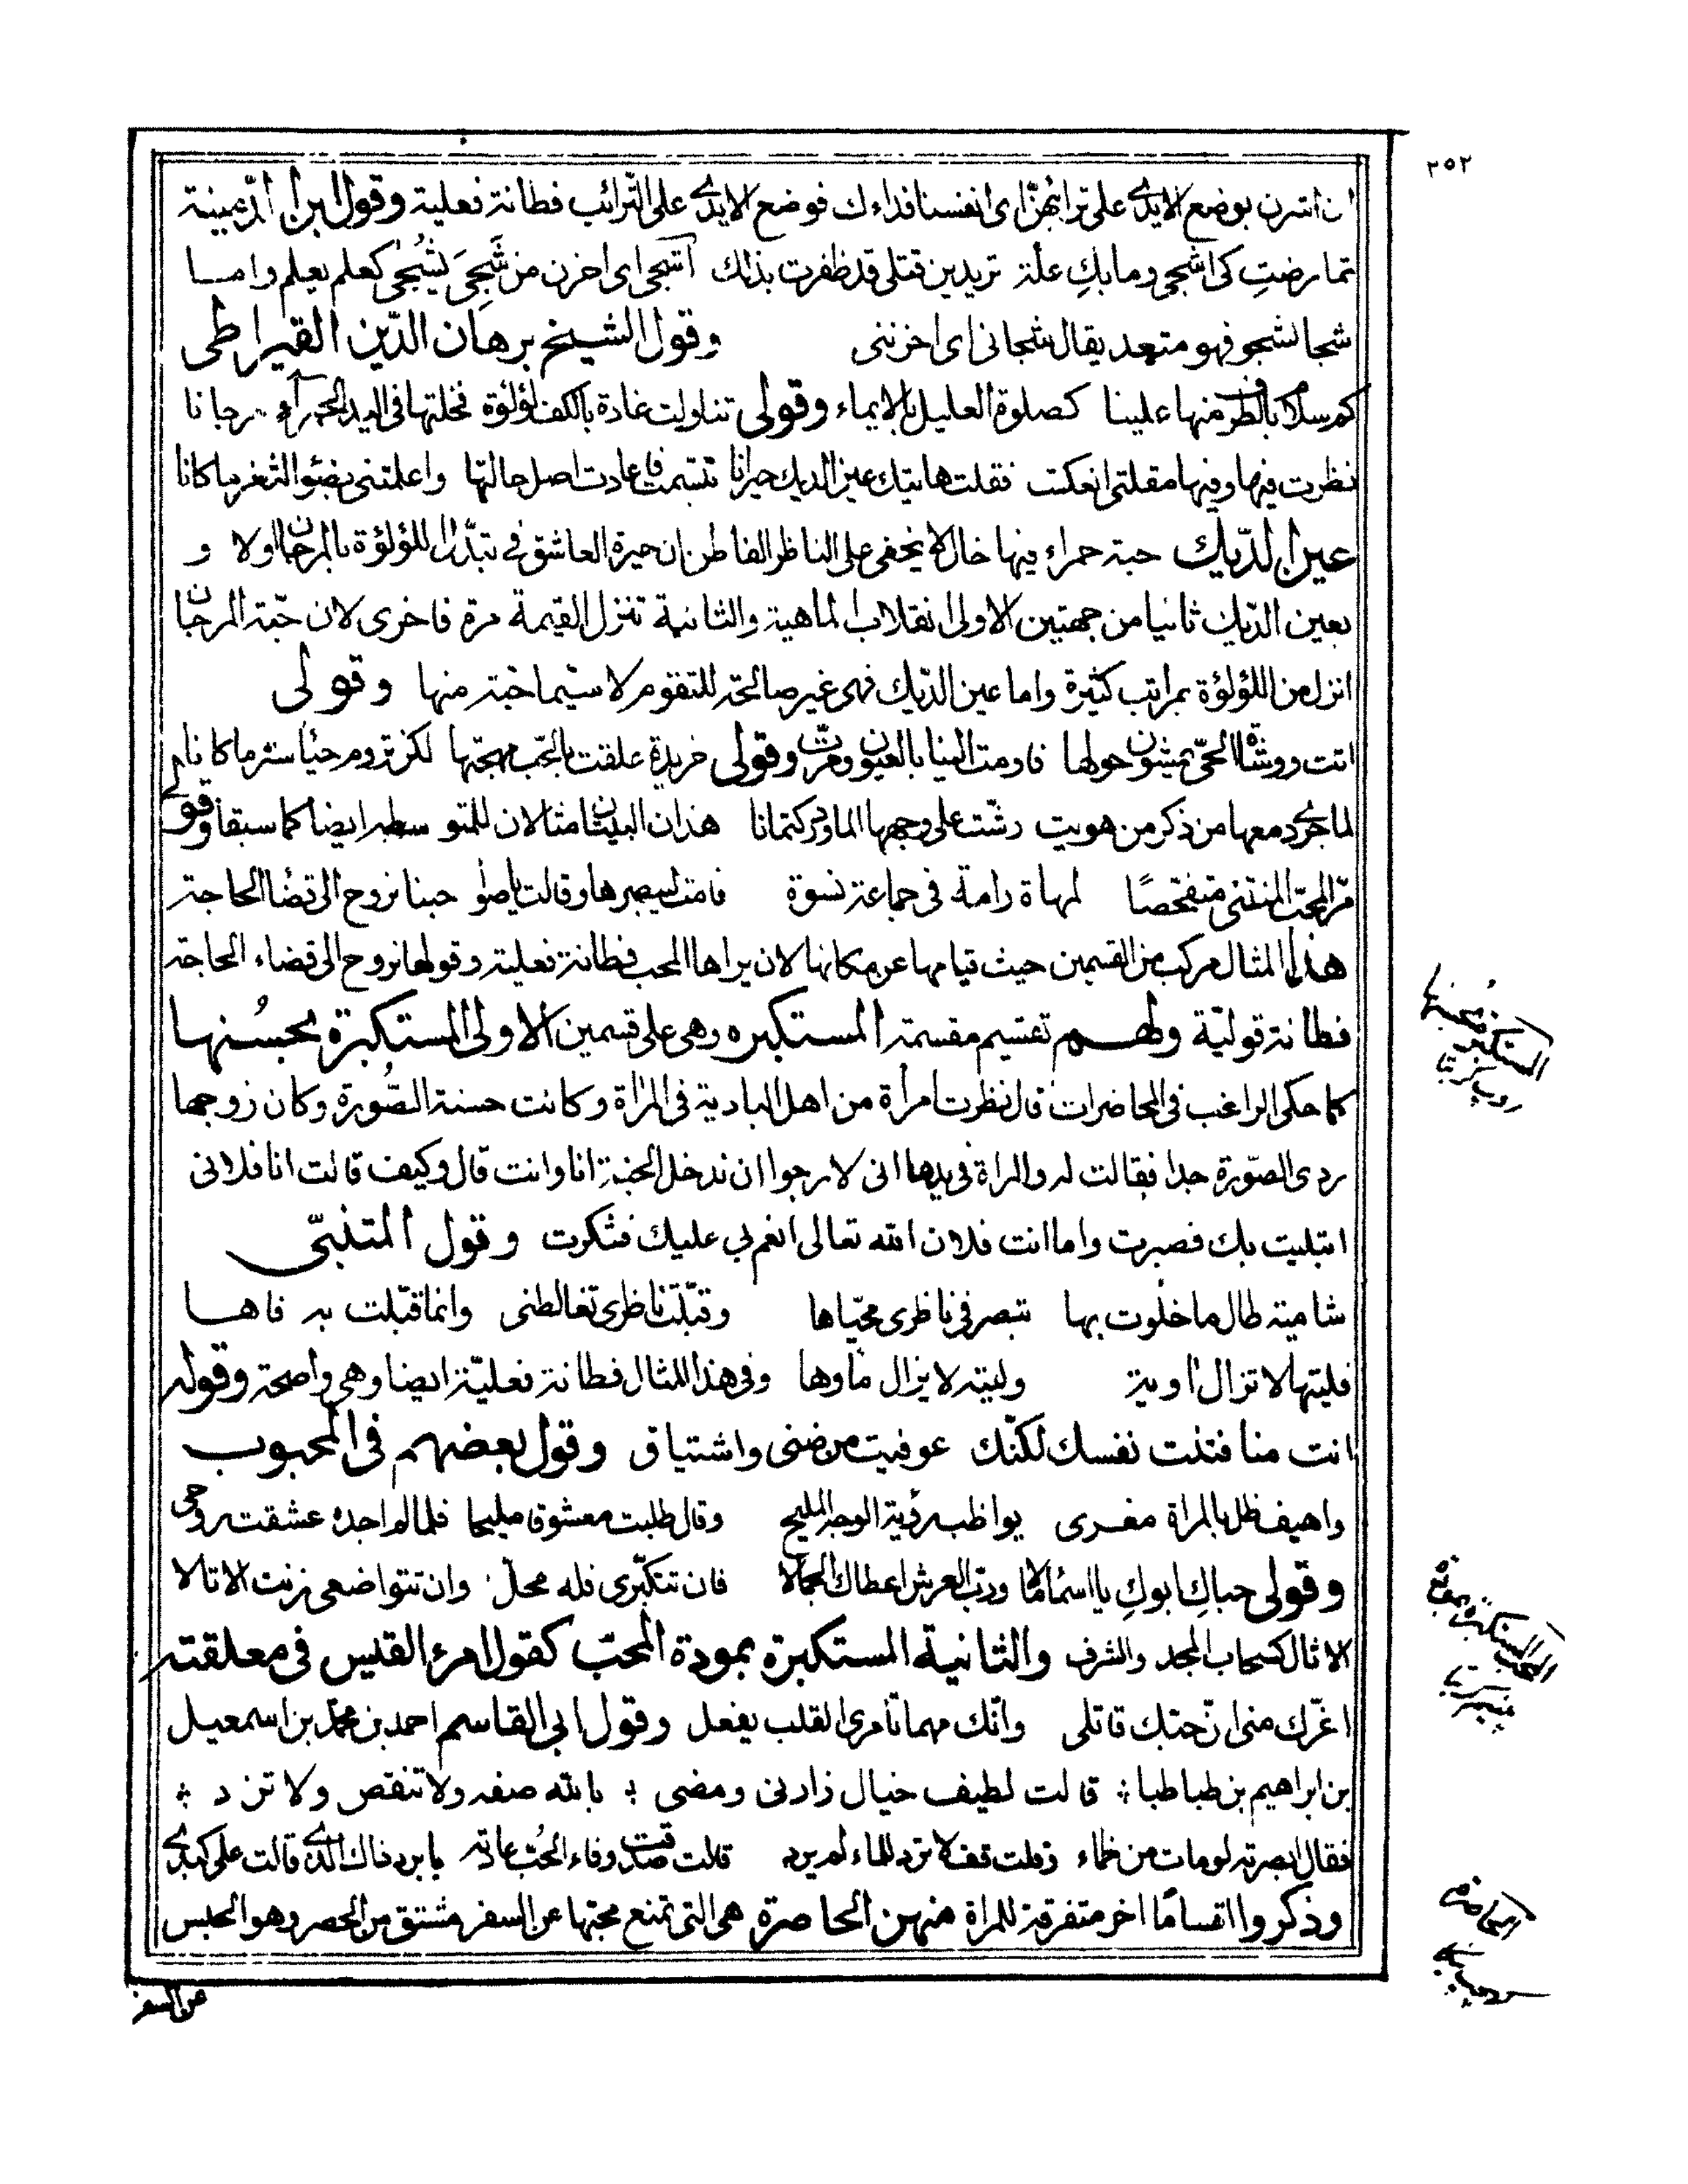 ٢٥٢
ان اشرن بوضع الايدي على ترائبهنّ اى انفسنا فداءك فوضع الايدي على الترائب فطانة فعلية وقول ابن الدّمينة
تمارضتِ كى اشجى وما بكِ علّة تريدين قتلى قد ظفرت بذلك اشجى اى احزن من شَجِىَ يشُجٰى كعلم يعلم واما
شجا يشجو فهو متعد يقال شجانى اى احزننى وقول الشيخ برهان الدّين القيراطى
كم سلام بالطرف منها علينا كصلوة العليل بالايماء وقولى تناولت غادة بالكف لؤلؤة فخلتها فى اليد الحمراء مرجانا
نظرت فيها وفيها مقلتى انعكست فقلت هاتيك عين الديك حيرانا تبسمت فاعادت اصل حالتها واعلمتنى بضوء الثغر ما كانا
عين الدّيك حبة حمراء فيها خال لا يخفى على الناظر الفاطن ان حيرة العاشق فى تبدّل اللؤلؤة بالمرجان اولا و
بعين الدّيك ثانيا من جهتين الاولى انقلاب الماهية والثانية تنزل القيمة مرة فاخرى لان حبّة المرجان
انزل من اللؤلؤة بمراتب كثيرة واما عين الدّيك فهى غير صالحة للتقوم لا سيّما حبّة منها وقولى
اتت ووشاة الحىّ يمشون حولها فاومت الينا بالعيون ومرّت وقولى خريدة علقت بالحبّ مهجتها لكن تروم حياء ستر ما كانا
لما جرى دمعها من ذكر من هويت رشّت على وجهها الماورد كتمانا هذان البيتان مثالان للمتوسطه ايضا كما سبقا وقولى
مرّ المحبّ المنتنى متفحّصًا لمهاة رامة فى جماعة نسوة فامت ليبصرها وقالت يا صواحبنا نروح الى قضا الحاجة
هذا المثال مركب من القسمين حيث قيامها عن مكانها لان يراها المحب فطانة فعلية وقولها نروح الى قضاء الحاجة
فطانة قوليّة ولهم تقسيم مقسمة المستكبره وهى على قسمين الاولى المستكبرة بحسُنها
كما حكى الراغب فى المحاضرات قال نظرت امرأة من اهل البادية فى المرٰاة وكانت حسنة الصّورة وكان زوجها
ردى الصّورة جدا فقالت له والمراة فى يدها انى لارجوا ان ندخل الجنة انا وانت قال وكيف قالت انا فلانى
ابتليت بك فصبرت واما انت فلان الله تعالى انعم بى عليك فشكرت وقول المتنبّى
شامية طال ما خلوت بها تبصر فى ناظرى محيّاها وقبّلت ناظرى تغالطنى وانما قبّلت به فاها
فليتها لا تزال اوية وليته لا يزال ماوها وفى هذا المثال فطانة فعليّة ايضا وهى واضحة وقوله
انت منا فتنت نفسك لكنّك عوفيت من ضنى واشتياق وقول بعضهم فى المحبوب
واهيف ظل بالمراة مغرى يواظب رؤية الوجه المليح وقال طلبت معشوقا مليحا فلما لم اجده عشقت روحى
وقولى حباكِ ابوكِ يا اسماء مالا وربّ العرش اعطاك الجمالا فان تتكبّرى فله محلّ وان تتواضعى زنت الاثالا
الاثال كسحاب المجد والشرف والثانية المستكبرة بمودة المحبّ كقول امرء القيس فى معلقته
اغرّك منى انّ حبّك قاتلى وانّك مهما تأمرى القلب يفعل وقول ابى القاسم احمد بن محمّد بن اسمعيل
بن ابراهيم بن طباطبا قالت لطيف خيال زارنى ومضى بالله صفه ولا تنقص ولا تزد
فقال ابصرته لو مات من ظماء وقلت قف لا ترد للماء لم يرد قالت صدقت وفاء الحُبّ عادته يا برد ذاك الذى قالت على كبدى
وذكروا اقسامًا اخر متفرقة للمراة منهن الحاصرة هى التى تمنع محبّها عن السفر مشتق من الحصر وهو الحبس
المستكبرة بحسنها
المستكبرة بمودة المحب
الحاصرة
عن السفر